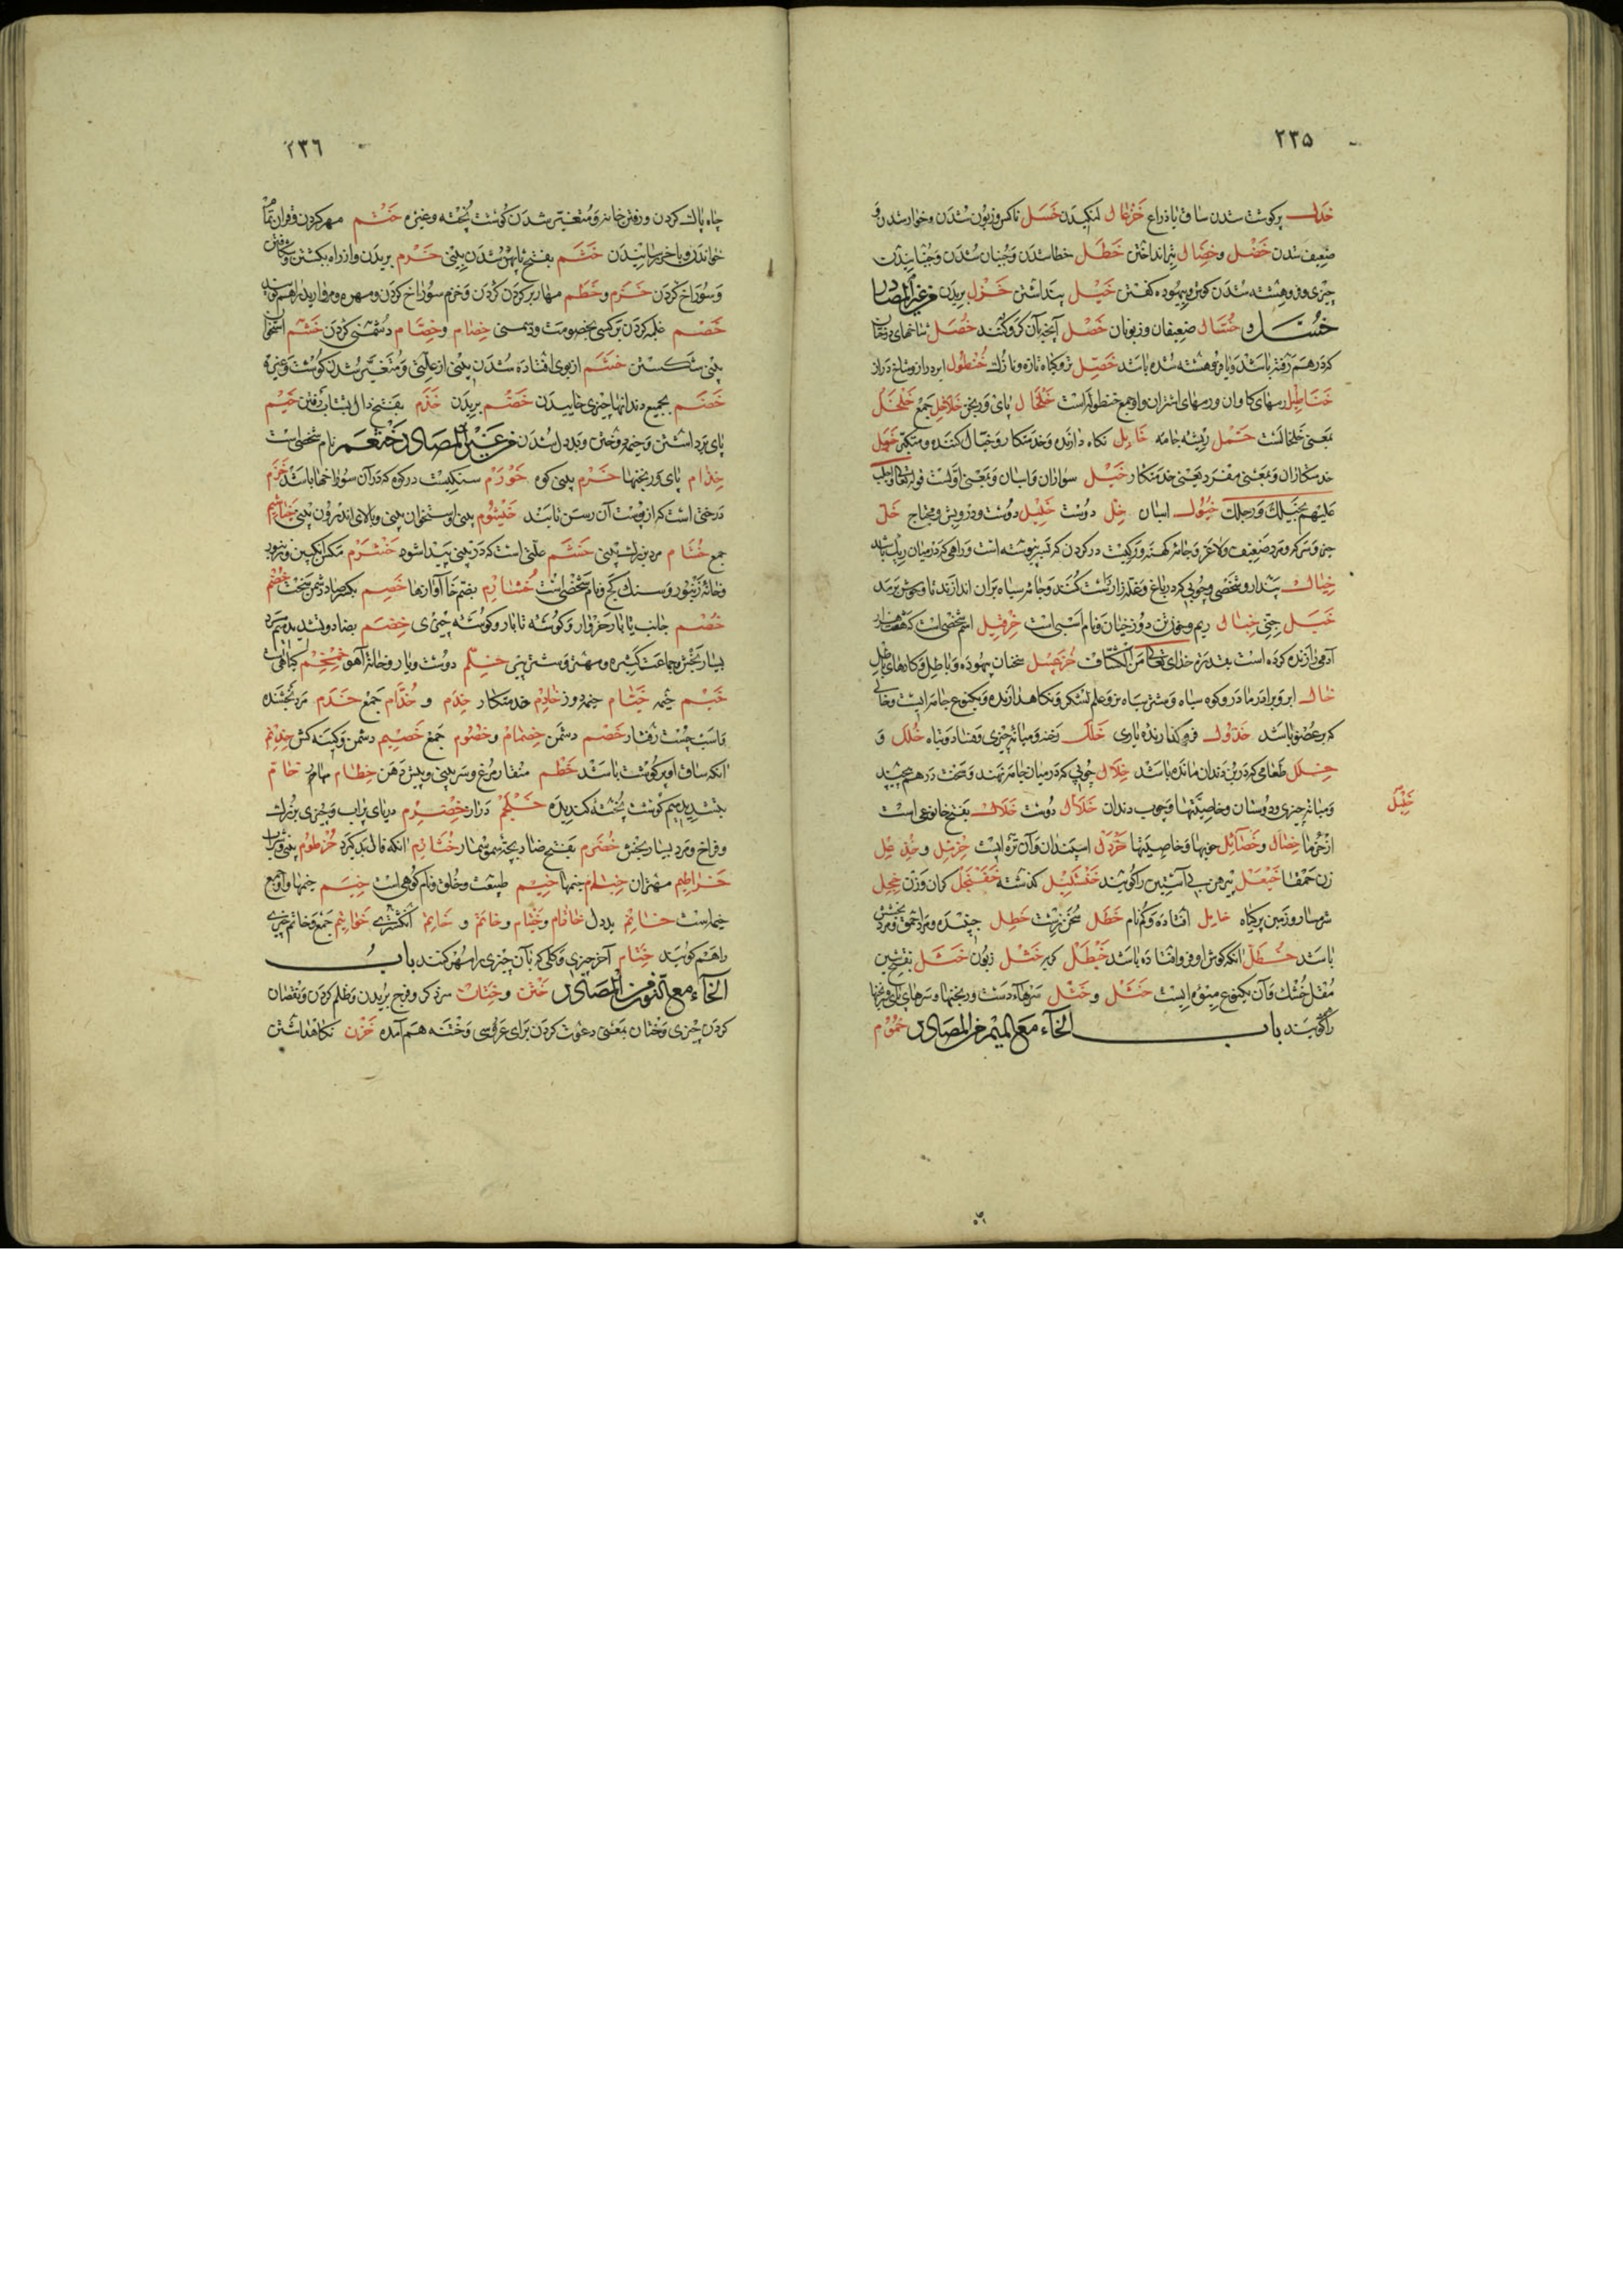 ٢٣٥
خدل پر کوشت شدن ساق یا ذراع خزعال لنکیدن خسل ناکس و زبون شدن و خوار شدن و
ضعیف شدن خضل و خصال تیر انداختن خطل خطا شدن و جنبان شدن و جنبانیدن
چیزی و فروهشته شدن کوش و بیهوده کفتن خیل پنداشتن خزل بریدن من غیر المصادر
خسل و خسال ضعیفان و زبونان خصل آنچه بآن کرو کنند خصل شاخهای درختان
که درهم رفته باشد و یا فروهشته شده باشد خضل تر و کیاه تازه و نازک خنطول ابر دراز و شاخ دراز
خناطیل رمهای کاوان و رمهای اشتران و او جمع خنطوله است خلخال پای ورنجن خلاخل جمع خلخل
بمعنی خلخالست خمل ریشه جامه خایل نکاه دارنده و خدمتکار و خیال کننده و متکبر خول
خدمتکاران و بمعنی مفرد یعنی خدمتکار خیل سواران و اسبان و بمعنی اولست قوله تعالی و اجلب
علیهم بخیلک و رجلک خیول اسبان خل دوست خلیل دوست و درویش و محتاج خل
خیال پندار و شخصی و چوبی که در باغ و غله زار راست کنند و جامه سیاه بران اندازند تا وحوش برمد
خبل جنی خبال ریم و خون تن دوزخیان و نام اسبی است خرقیل اسم شخصی است که هفتاد هزار
آدمی را زنده کرده است بقدرت خدای تعالی من الکشاف خزعبل سخنان بیهوده و باطل و کارهای باطل
خال ابر و برادر مادر و کوه سیاه و شتر سیاه نر و علم لشکر و نکاهدارنده و یکنوع جامه ایست و خالی
که بر عضو باشد خذول فروکذارنده یاری خلل رخنه و میانه چیزی و فساد و تباه خلل و
خلل طعامی که در بن دندان مانده باشد خلال چوبی که در میان جامه نهند و سخت درهم پیچید
و میانه چیزی و دوستان و خاصیتها و چوب دندان خلال دوست خلال بفتح خا نوعی است
خیل
از خرما خصال و خصایل خویها و خاصیتها خردل اسپندان و آن تره ایست خرمل و خذعل
زن حمقا خیعل پیرهن بی آستین را کویند خنشلیل کذشته خفنجل کمان و زن خجل
شرمسار و زمین پر کیاه خامل افتاده و کم نام خطل سخن زشت خطل جنبنده و مرد احمق و مرد بخشش
باشد خطل آنکه کوش او فرو افتاده باشد خیطل کربه خشل زبون خشل بفتحتین
مقل خشک و آن یکنوع میوه ایست خشل و خشل سرهاء دست ورنجنها و سرهای پای ورنجنها
را کویند باب الخاء مع المیم من المصادر خموم
٢٣٦
چاه پاک کردن و رفتن خانه و متغیر شدن کوشت پخته و غیره ختم مهر کردن و قرآن تمام
خواندن و باخر رسانیدن خثم بفتح ثا پهن شدن بینی خرم بریدن و از راه بکشتن و شکافتن
و سوراخ کردن خزم و خطم مهار بر کردن کردن و خزم سوراخ کردن و مهره و مروارید را هم کویند
خصم غلبه کردن بر کسی بخصومت و دشمنی خصام و خصام دشمنی کردن خشم استخوان
بینی شکستن خشم از بوی افتاده شدن بینی از علتی و متغیر شدن کوشت و غیره
خضم بجمیع دندانها چیزی خاییدن خضم بریدن خذم بفتح ذال بشتاب رفتن خیم
پای برداشتن و خیمه زدن و بددل شدن من غیر المصادر خثعم نام شخصی است
خدام پای ورنجنها خرم بینی کوه خورم سنکیست در کوه که در آن سوراخها باشد خزم
درختی است که از پوست آن رسن تابند خیشوم بینی و استخوان بینی و بالای اندرون بینی خیاشیم
جمع خشام مرد بزرک بینی خشم علتی است که در بینی پیدا شود خشرم مکس انکبین و زنبور
و خانه زنبور و سنک کج و نام شخصی است خشارم بضم خا آوازها خصم بکسر صاد دشمن سخت خصم
خصم جانب یا بار خروار و کوشه تا بار و کوشه چیزی خضم بضاد و تشدید میم مرد
بسیار بخش و جماعت کثیره و مهتر و شتر پیر خلم دوست و یار و خانه آهو خمخم کیاهی است
خیم خیمه خیام خیمه دوز خادم خدمتکار خدم و خدام جمع خذم مرد بخشنده
و اسب چست رفتار خصم دشمن خصام و خصوم جمع خصیم دشمن و کینه کش خدلم
آنکه ساق او پر کوشت باشد خطم منقار مرغ و سر بینی و پیش دهن خطام مهار خام
بتشدید میم کوشت پخته کندیده خلجم دراز خضرم دریای پر آب و چیزی بزرک
و فراخ و مرد بسیار بخش خضرم بفتح ضاد بچه سوسمار خثارم آنکه فال بد کیرد خرطوم بینی و شراب
خراطیم مهتران خیام خیمها خیم طبیعت و خلق و نام کوهی است خیم خیمها و او جمع
خیمه است خایم بددل خاتام و خیتام و خاتم و خاتم انکشتری خواتیم جمع و خاتم چیزی
را هم کویند ختام آخر چیزی و کلی که بآن چیزی را مهر کنند باب
الخاء مع النون من المصادر ختن و ختان سر ذکر و فرج بریدن و ظلم کردن و نقصان
کردن چیزی و ختان بمعنی دعوت کردن برای عروسی و ختنه هم آمده خزن نکاهداشتن